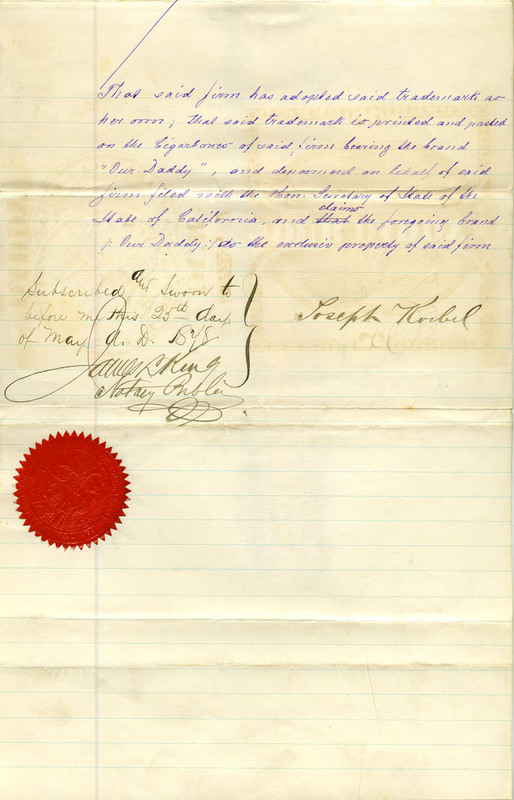 That said firm has adopted said trademark as
her own; that said trademark is printed and pasted
on the Cigarboxes of said firm bearing the brand
"Our Daddy", and deponent on behalf of said
firm filed with the Hon. Secretary of State of the
State of California, and that claims the foregoing brand
/: Our Daddy :/ as the exclusive property of said firm
Subscribed and Sworn to
before me this 25th day
of May A. D. 1878
James L King
Notary Public
Joseph Korbel